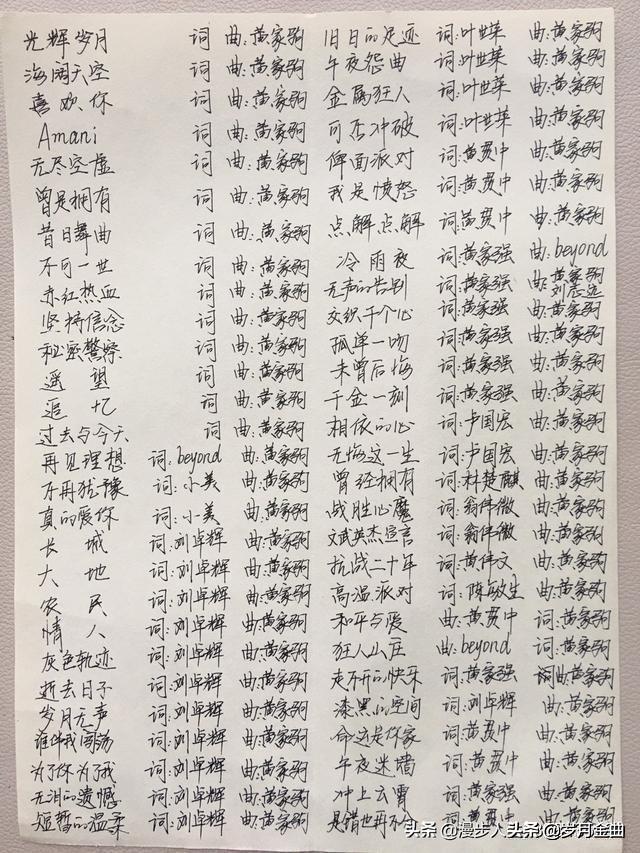 光辉岁月 词 曲:黄家驹
海阔天空 词 曲:黄家驹
喜欢你 词 曲:黄家驹
Amani 词 曲:黄家驹
无尽空虚 词 曲:黄家驹
曾是拥有 词 曲:黄家驹
昔日舞曲 词 曲:黄家驹
不可一世 词 曲:黄家驹
赤红热血 词 曲:黄家驹
坚持信念 词 曲:黄家驹
秘密警察 词 曲:黄家驹
遥望 词 曲:黄家驹
追忆 词 曲:黄家驹
过去与今天 词 曲:黄家驹
再见理想 词:beyond 曲:黄家驹
不再犹豫 词:小美 曲:黄家驹
真的爱你 词:小美 曲:黄家驹
长城 词:刘卓辉 曲:黄家驹
大地 词:刘卓辉 曲:黄家驹
农民 词:刘卓辉 曲:黄家驹
情人 词:刘卓辉 曲:黄家驹
灰色轨迹 词:刘卓辉 曲:黄家驹
逝去日子 词:刘卓辉 曲:黄家驹
岁月无声 词:刘卓辉 曲:黄家驹
谁伴我闯荡 词:刘卓辉 曲:黄家驹
为了你为了我 词:刘卓辉 曲:黄家驹
无泪的遗憾 词:刘卓辉 曲:黄家驹
短暂的温柔 词:刘卓辉 曲:黄家驹
旧日的足迹 词:叶世荣 曲:黄家驹
午夜怨曲 词:叶世荣 曲:黄家驹
金属狂人 词:叶世荣 曲:黄家驹
可否冲破 词:叶世荣 曲:黄家驹
俾面派对 词:黄贯中 曲:黄家驹
我是愤怒 词:黄贯中 曲:黄家驹
点解点解 词:黄贯中 曲:黄家驹
冷雨夜 词:黄家强 曲:beyond
无声的告别 词:黄家强 曲:黄家驹 刘志远
交织千个心 词:黄家强 曲:黄家驹
孤单一吻 词:黄家强 曲:黄家驹
未曾后悔 词:黄家强 曲:黄家驹
千金一刻 词:黄家强 曲:黄家驹
相依的心 词:卢国宏 曲:黄家驹
无悔这一生 词:卢国宏 曲:黄家驹
曾经拥有 词:林楚麒 曲:黄家驹
战胜心魔 词:翁伟微 曲:黄家驹
文武英杰宣言 词:翁伟微 曲:黄家驹
抗战二十年 词:黄伟文 曲:黄家驹
高温派对 词:陈敏生 曲:黄家驹
和平与爱 曲:黄贯中 词:黄家驹
狂人山庄 曲:beyond 词:黄家驹
走不开的快乐 词:黄家强 曲:黄家驹
漆黑的空间 词:刘卓辉 曲:黄家驹
命运是你家 词:黄贯中 曲:黄家驹
午夜迷墙 词:黄贯中 曲:黄家驹
冲上云霄 词:黄家强 曲:黄家驹
是错也再不分 词:黄贯中 曲:黄家驹
头条 @漫步人 头条 @岁月金曲